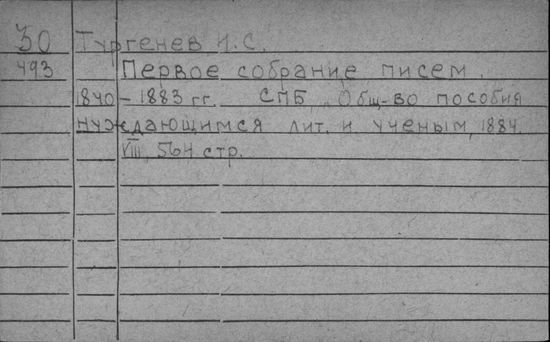 30 Тургенев И.С.
493 Первое собрание писем.
1840 – 1883 гг. СПБ, Общ-во пособия
нуждающимся лит. и ученым, 1884.
VIII, 564 стр.